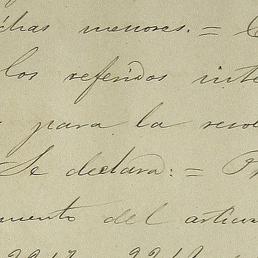 chas menores. =
los referidos inte
para la reso
Se declara: = Pr
mento del articu